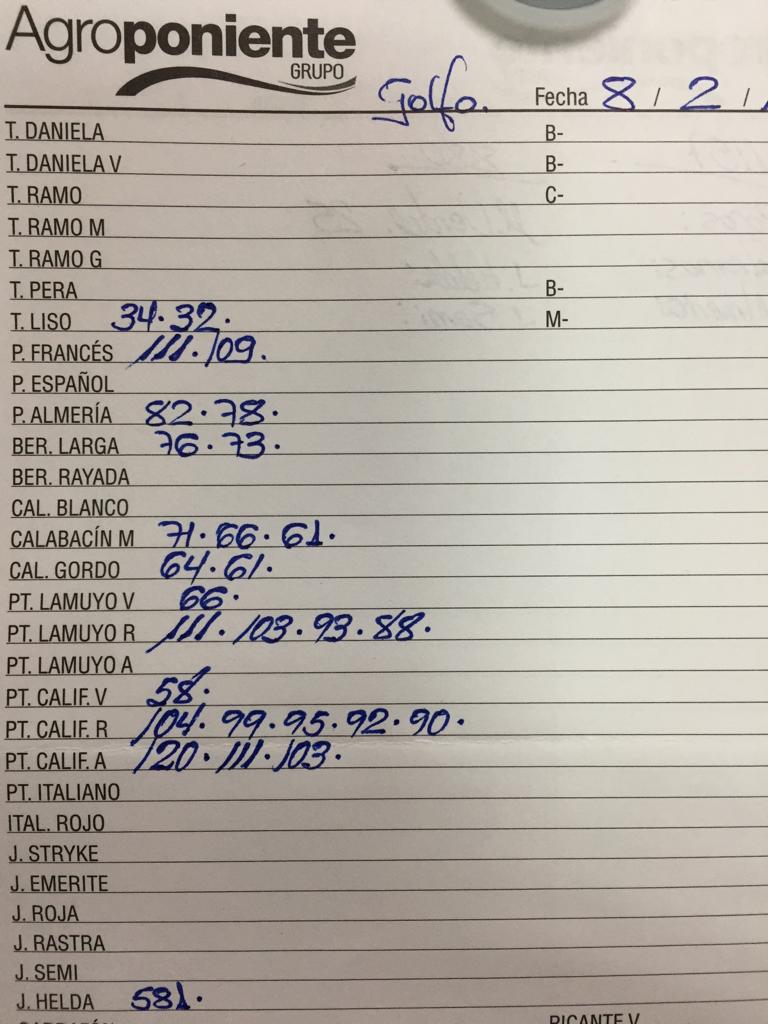 Agroponiente
GRUPO
Golfo. Fecha 8 / 2 /
T. DANIELA B-
T. DANIELA V B-
T. RAMO C-
T. RAMO M
T. RAMO G
T. PERA B-
T. LISO 34. 32. M-
P. FRANCÉS 111. 109.
P. ESPAÑOL
P. ALMERÍA 82. 78.
BER. LARGA 76. 73.
BER. RAYADA
CAL. BLANCO
CALABACÍN M 71. 66. 61.
CAL. GORDO 64. 61.
PT. LAMUYO V 66.
PT. LAMUYO R 111. 103. 93. 88.
PT. LAMUYO A
PT. CALIF. V 58.
PT. CALIF. R 104. 99. 95. 92. 90.
PT. CALIF. A 120. 111. 103.
PT. ITALIANO
ITAL. ROJO
J. STRYKE
J. EMERITE
J. ROJA
J. RASTRA
J. SEMI
J. HELDA 581.
PICANTE V